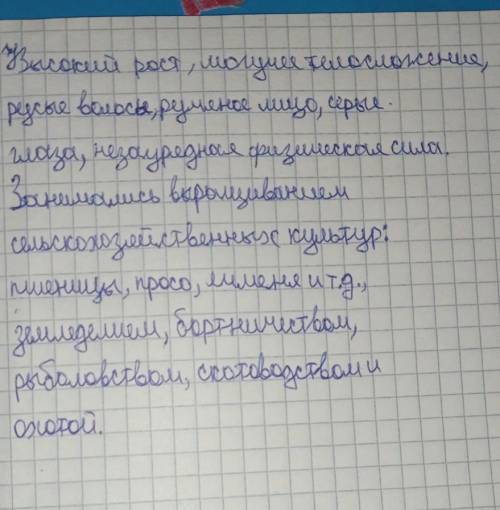 Высокий рост, могучее телосложение,
русые волосы, румяное лицо, серые
глаза, незаурядная физическая сила.
Занимались выращиванием
сельскохозяйственных культур:
пшеницы, просо, ячменя и т.д.,
земледелием, бортничеством,
рыболовством, скотоводством и
охотой.